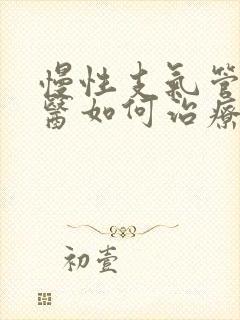 慢性支氣管
醫如何治療
初壹